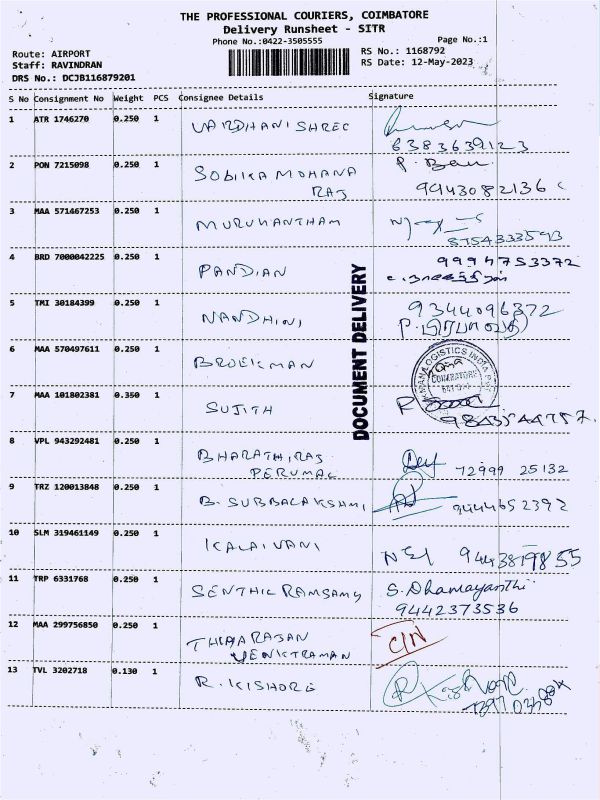 THE PROFESSIONAL COURIERS, COIMBATORE
Delivery Runsheet - SITR
Phone No.:0422-3505555 Page No.:1
Route: AIRPORT RS No.: 1168792
Staff: RAVINDRAN RS Date: 12-May-2023
DRS No.: DCJB116879201
S No Consignment No Weight PCS Consignee Details Signature
1 ATR 1746270 0.250 1 VARDHANI SHREE
6383639123
2 PON 7215098 0.250 1 SOBIKA MOHANA P. Banu
RAJ 9943082136
3 MAA 571467253 0.250 1 MURUHANTHAM
8754333593
4 BRD 7000042225 0.250 1 PANDIAN 9994753372
5 TMI 30184399 0.250 1 NANDHINI 9344096372
P. பிரபாவதி
6 MAA 570497611 0.250 1 BROEKMAN
LOGISTICS INDIA PVT
COIMBATORE
7 MAA 101802381 0.350 1 SUJITH
9843544757.
8 VPL 943292481 0.250 1 BHARATHIRAJ
PERUMAL 72999 25132
9 TRZ 120013848 0.250 1 B. SUBBALAKSHMI 9444652392
10 SLM 319461149 0.250 1 KALAIVANI
9443819855
11 TRP 6331768 0.250 1 SENTHIL RAMSAMY S. Dhamayanthi
9442373536
12 MAA 299756850 0.250 1 THIYARAJAN C/N
VENKTRAMAN
13 TVL 3202718 0.130 1 R. KISHORE
DOCUMENT DELIVERY